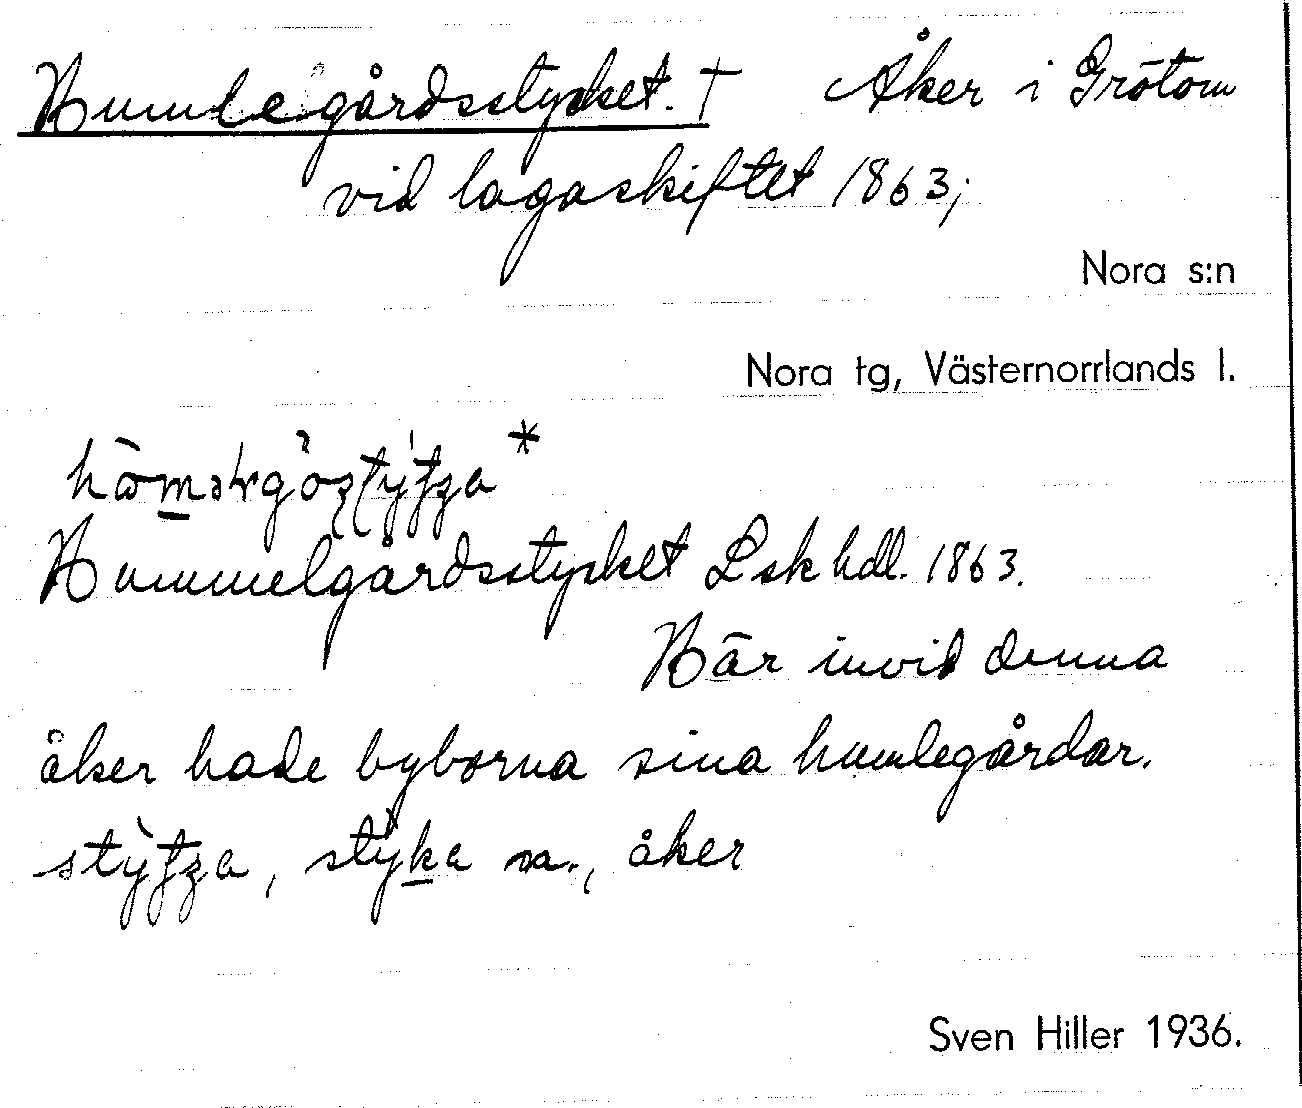 Humlegårdsstycket. † Åker i Grötom
vid lagaskiftet 1863;
Nora s:n
Nora tg, Västernorrlands l.
Hummelgårdsstycket Lsk hdl. 1863.
Här invid denna
åker hade byborna sina humlegårdar.
m., åker
Sven Hiller 1936.